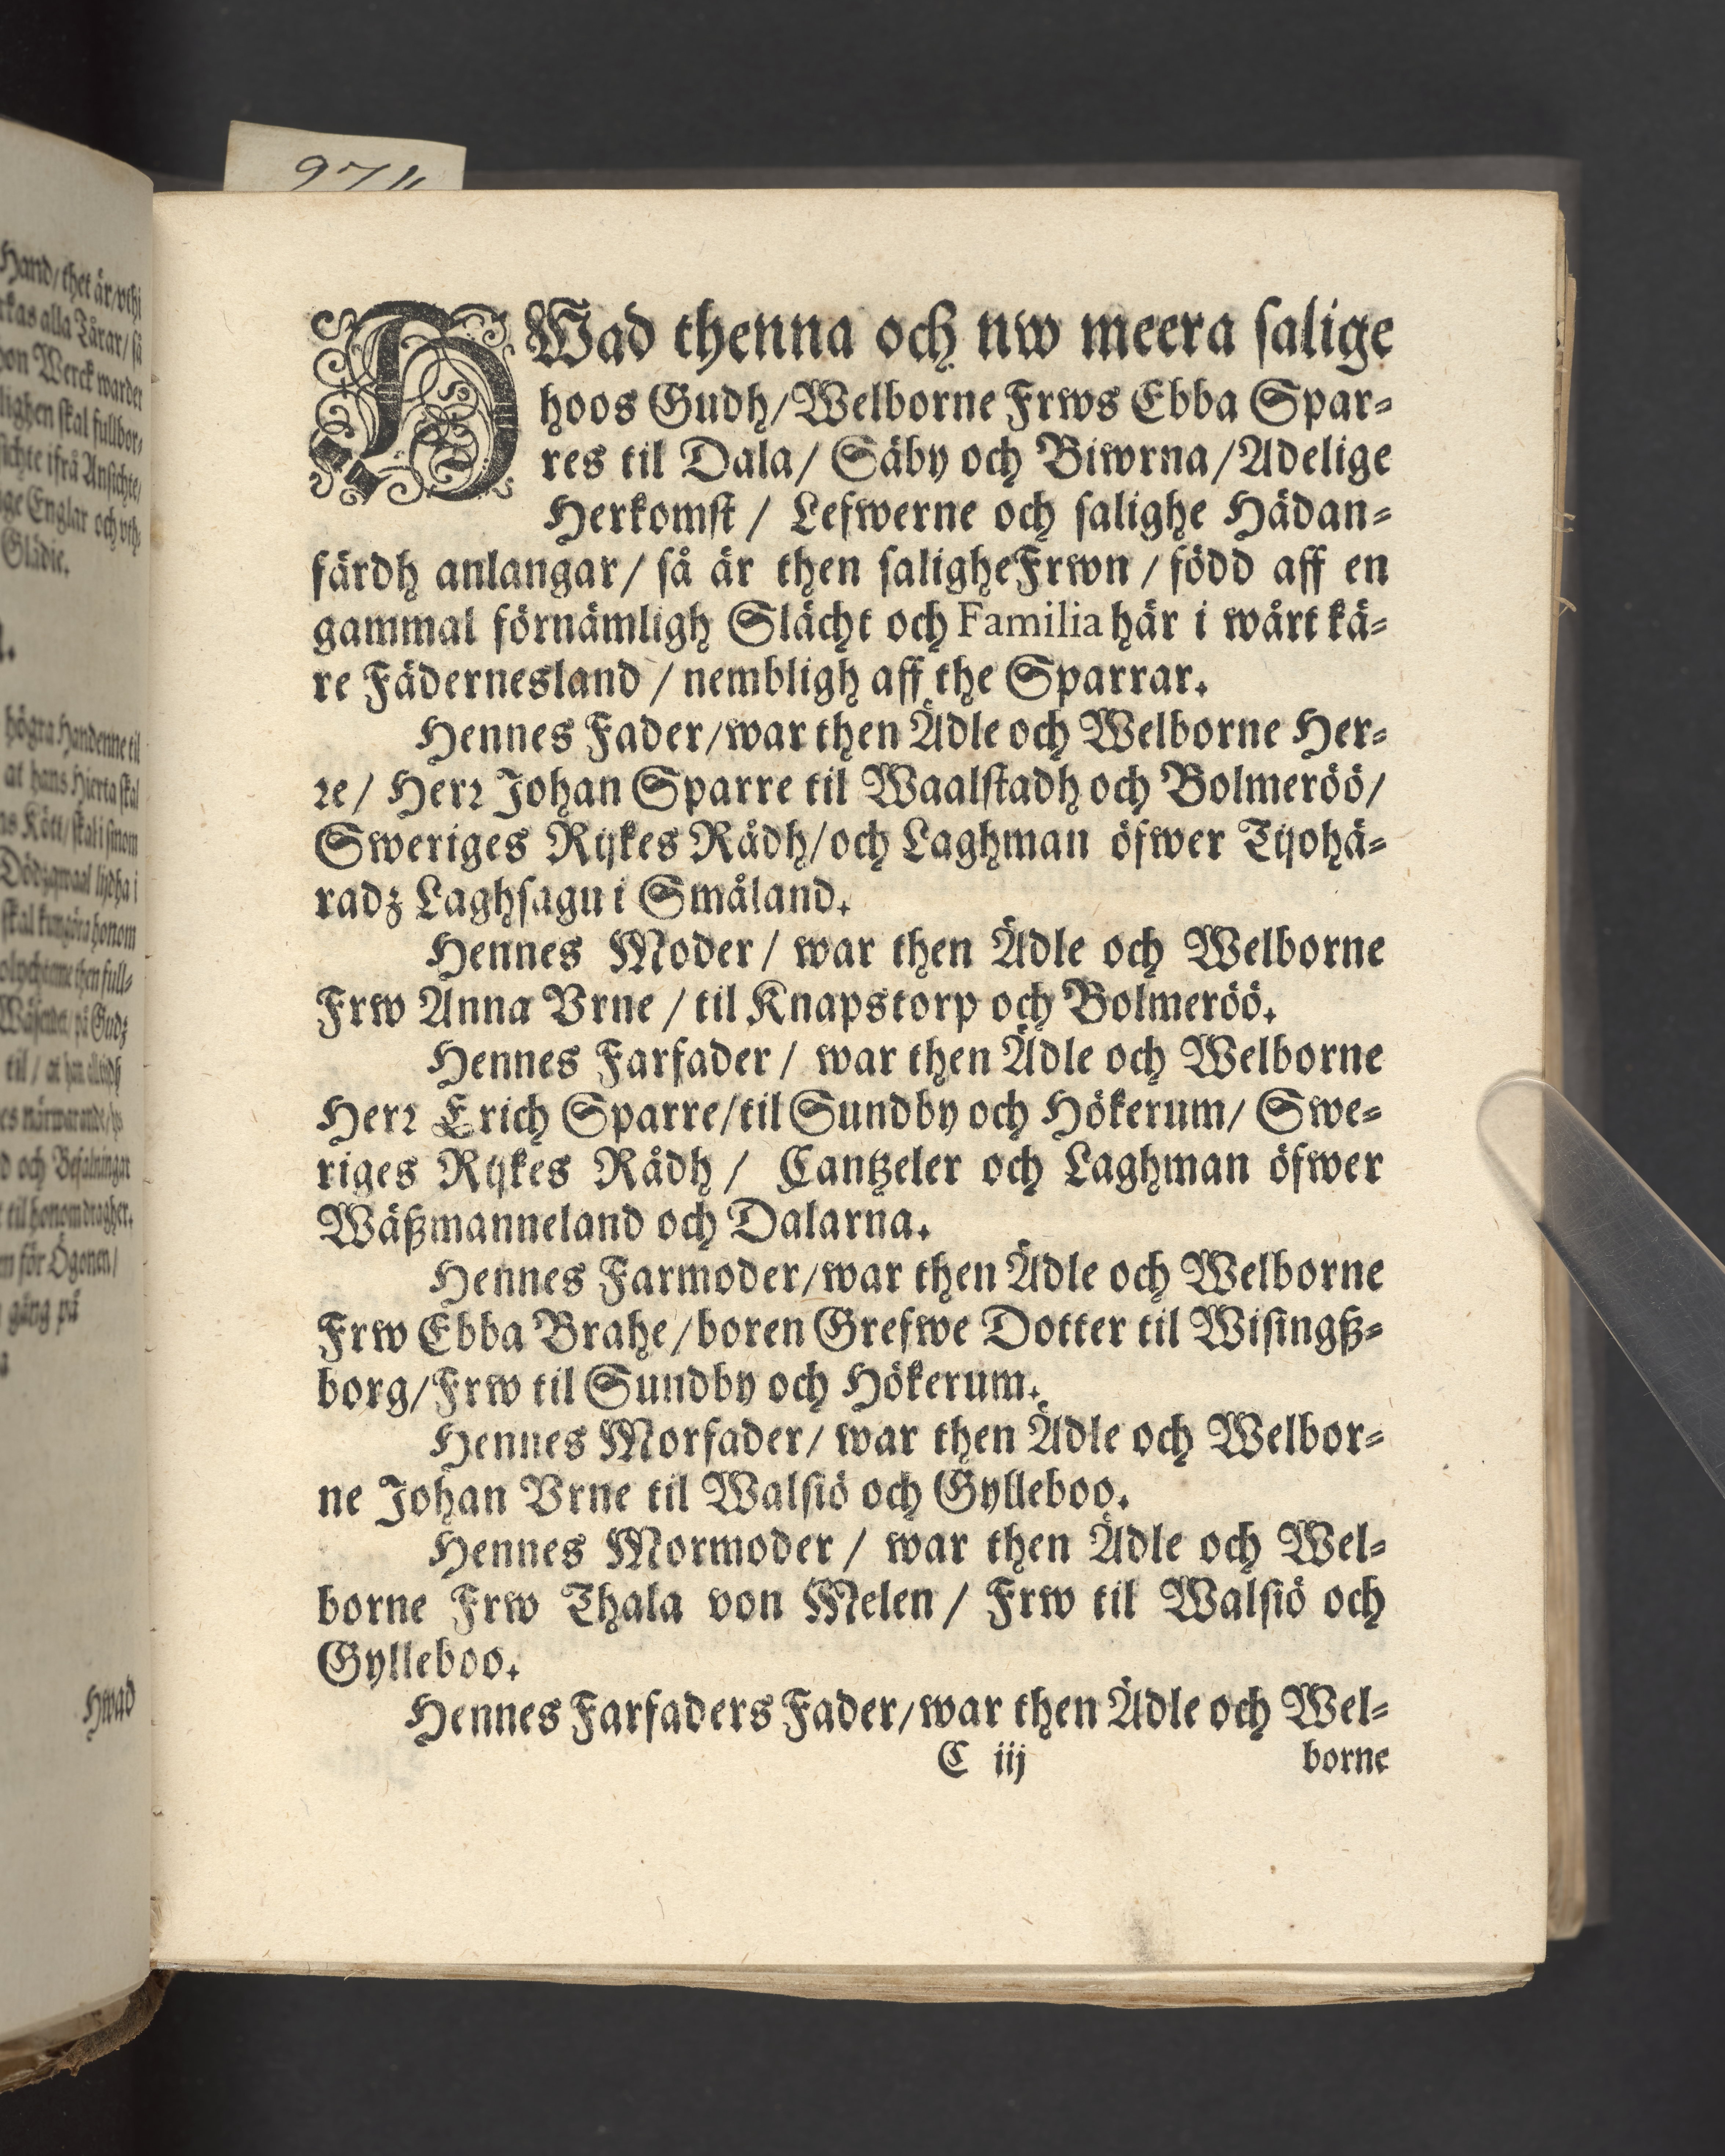 974
Hand/ thet är/ vthi
kas alla Tårar/ så
on Werck warder
lighen skal fullbor⸗
sichte ifrå Ansichte/
ge Englar och vth⸗
Glädie.
högra Handenne til
at hans Hierta skal
ns Kött/ skal i sinom
Dödzqwaal lijdha i
skal kungöra honom
then full⸗
på Gudz
til/ at
es närwarande/
d och Befalningar
til honom dragher.
m för Ögonen/
gång på
Hwad
HWad thenna och nw meera salige
hoos Gudh/ Welborne Frws Ebba Spar⸗
res til Dala/ Säby och Biwrna/ Adelige
Herkomst/ Lefwerne och salighe Hädan⸗
färdh anlangar/ så är then salighe Frwn/ född aff en
gammal förnämligh Slächt och Familia här i wårt kä⸗
re Fädernesland/ nembligh aff the Sparrar.
Hennes Fader/ war then Ädle och Welborne Her⸗
re/ Herr Johan Sparre til Waalstadh och Bolmeröö/
Sweriges Rijkes Rådh/ och Laghman öfwer Tijohä⸗
radz Laghsagu i Småland.
Hennes Moder/ war then Ädle och Welborne
Frw Anna Vrne/ til Knapstorp och Bolmeröö.
Hennes Farfader/ war then Ädle och Welborne
Herr Erich Sparre/ til Sundby och Hökerum/ Swe⸗
riges Rijkes Rådh/ Cantzeler och Laghman öfwer
Wäßmanneland och Dalarna.
Hennes Farmoder/ war then Ädle och Welborne
Frw Ebba Brahe/ boren Grefwe Dotter til Wisingß⸗
borg/ Frw til Sundby och Hökerum.
Hennes Morfader/ war then Ädle och Welbor⸗
ne Johan Vrne til Walsiö och Gylleboo.
Hennes Mormoder/ war then Ädle och Wel⸗
borne Frw Thala von Melen/ Frw til Walsiö och
Gylleboo.
Hennes Farfaders Fader/ war then Ädle och Wel⸗
C iij borne